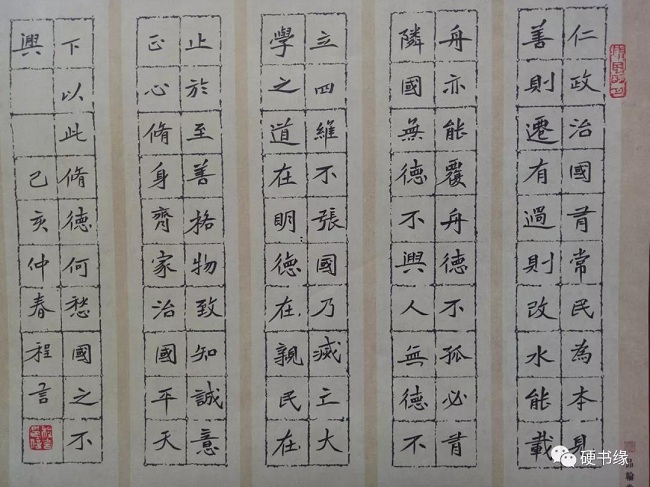 仁政治國有常民為本見
善則遷有過則改水能載
舟亦能覆舟德不孤必有
隣國無德不興人無德不
立四維不張國乃滅亡大
學之道在明德在親民在
止於至善格物致知誠意
正心脩身齊家治國平天
下以此脩德何愁國之不
興
己亥仲春程言
硬书缘